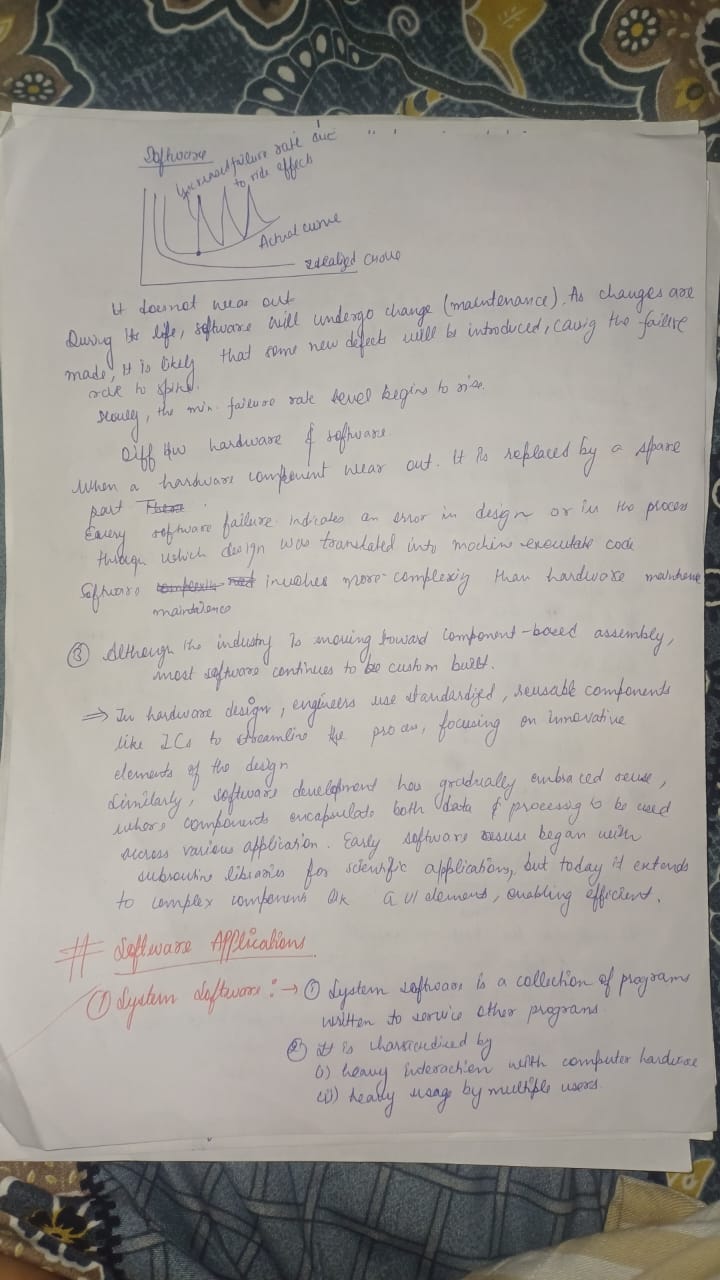 Software
Increased failure rate due
to side effects
Actual curve
Idealized curve
It doesnot wear out
During its life, software will undergo change (maintenance). As changes are
made, it is likely that some new defects will be introduced, causig the failure
rate to spike.
Slowly, the min. failure rate level begins to rise.
Diff b/w hardware & software
When a hardware component wear out. It is replaced by a spare
part There
Every software failure indicates an error in design or in the process
through which design was translated into machine executate code
Software involves more complexiy than hardware
maintalence
③ Although the industry is moving toward component-based assembly,
most software continues to be custom built.
⇒ In hardware design, engineers use standardized, reusable components
like ICs to streamline the process, focusing on innovative
elements of the design
Similarly, software development has gradually embraced reuse,
where components encapsulate both data & processig to be used
across various application. Early software reuse began with
subroutine libraries for scientific applications, but today it extends
to complex component like GUI element, enabling efficient.
# Software Applications.
① System Software :→ ① System software is a collection of programs
written to service other programs.
② It is by
i) heavy interaction with computer hardware
ii) heavy usage by multiple users.